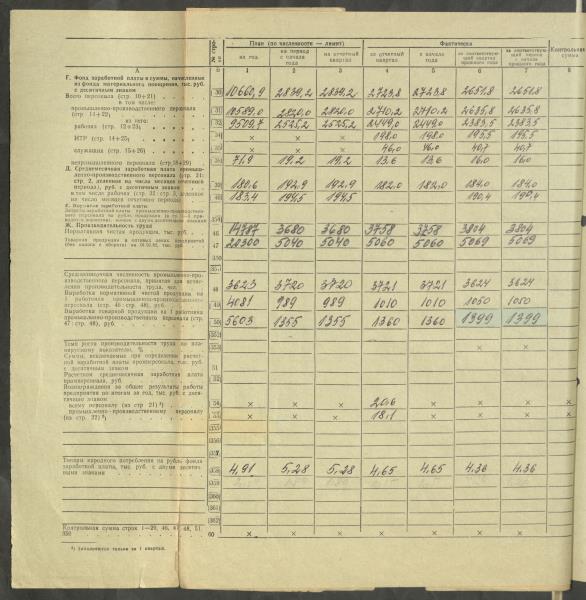 План (по численности — лимит)
Фактически
№ стр.
на год
на период с начала года
на отчетный квартал
за отчетный квартал
с начала года
за соответствую-щий квартал прошлого года
за соответствую-щий период с начала прошлого года
Контрольная сумма
А 0 1 2 3 4 5 6 7 8
Г. Фонд заработной платы и суммы, начисленные
из фонда материального поощрения, тыс. руб.
с десятичным знаком
Всего персонала (стр. 10+21) 30 10660,9 2839,2 2839,2 2723,8 2723,8 2651,8 2651,8
в том числе:
промышленно-производственного персонала
(стр. 11+22) 10589,0 2820,0 2820,0 2710,2 2710,2 2635,8 2635,8
из него:
рабочих (стр. 12+23) 32 9579,7 2525,2 2525,2 2449,0 2449,0 2383,5 2383,5
ИТР (стр. 14+25) × × × 198,0 198,0 195,5 195,5
служащих (стр. 15+26) × × × 46,0 46,0 40,7 40,7
непромышленного персонала (стр. 18+29) 71,9 19,2 19,2 13,6 13,6 16,0 16,0
Д. Среднемесячная заработная плата промыш-
ленно-производственного персонала (стр. 31:
стр. 2, деленное на число месяцев отчетного
периода), руб. с десятичным знаком 39 180,6 192,9 192,9 182,0 182,0 184,0 184,0
в том числе рабочих (стр. 32 : стр. 3, деленное
на число месяцев отчетного периода) 40 183,4 194,5 194,5 190,4 190,4
354
Ж. Производительность труда
Нормативная чистая продукция, тыс. руб. 46 14787 3680 3680 3758 3758 3804 3804
Товарная продукция в оптовых ценах предприятий
47 20300 5040 5040 5060 5060 5069 5069
350
351
Среднесписочная численность промышленно-про-
изводственного персонала, принятая для исчис-
ления производительности труда, чел. 48 3623 3720 3720 3721 3721 3624 3624
Выработка нормативной чистой продукции на
1 работника промышленно-производственного
персонала (стр. 46 : стр. 48), руб. 49 4081 989 989 1010 1010 1050 1050
Выработка товарной продукции на 1 работника
промышленно-производственного персонала (стр.
47 : стр. 48), руб. 50 5603 1355 1355 1360 1360 1399 1399
352
Темп роста производительности труда по пла-
нируемому показателю, % 353 × ×
Суммы, исключаемые при определении расчет-
ной заработной платы промперсонала, тыс. руб.
с десятичным знаком 51
Расчетная среднемесячная заработная плата
промперсонала, руб. 52
Вознаграждения за общие результаты работы
предприятия по итогам за год, тыс. руб. с деся-
тичным знаком
всему персоналу (из стр. 21) ²) 54 × × × 20,6 × × × ×
промышленно-производственному персоналу
(из стр. 22) ²) 55 × × × 18,1 × × × ×
355
356
357
Товары народного потребления на рубль фонда
заработной платы, тыс. руб. с двумя десятич-
ными знаками 358 4,91 5,28 5,28 4,65 4,65 4,36 4,36
359
360
361
362
Контрольная сумма строк 1—29, 46, 47, 48, 51,
350 60 × × × × × × ×
²) Заполняется только за 1 квартал.